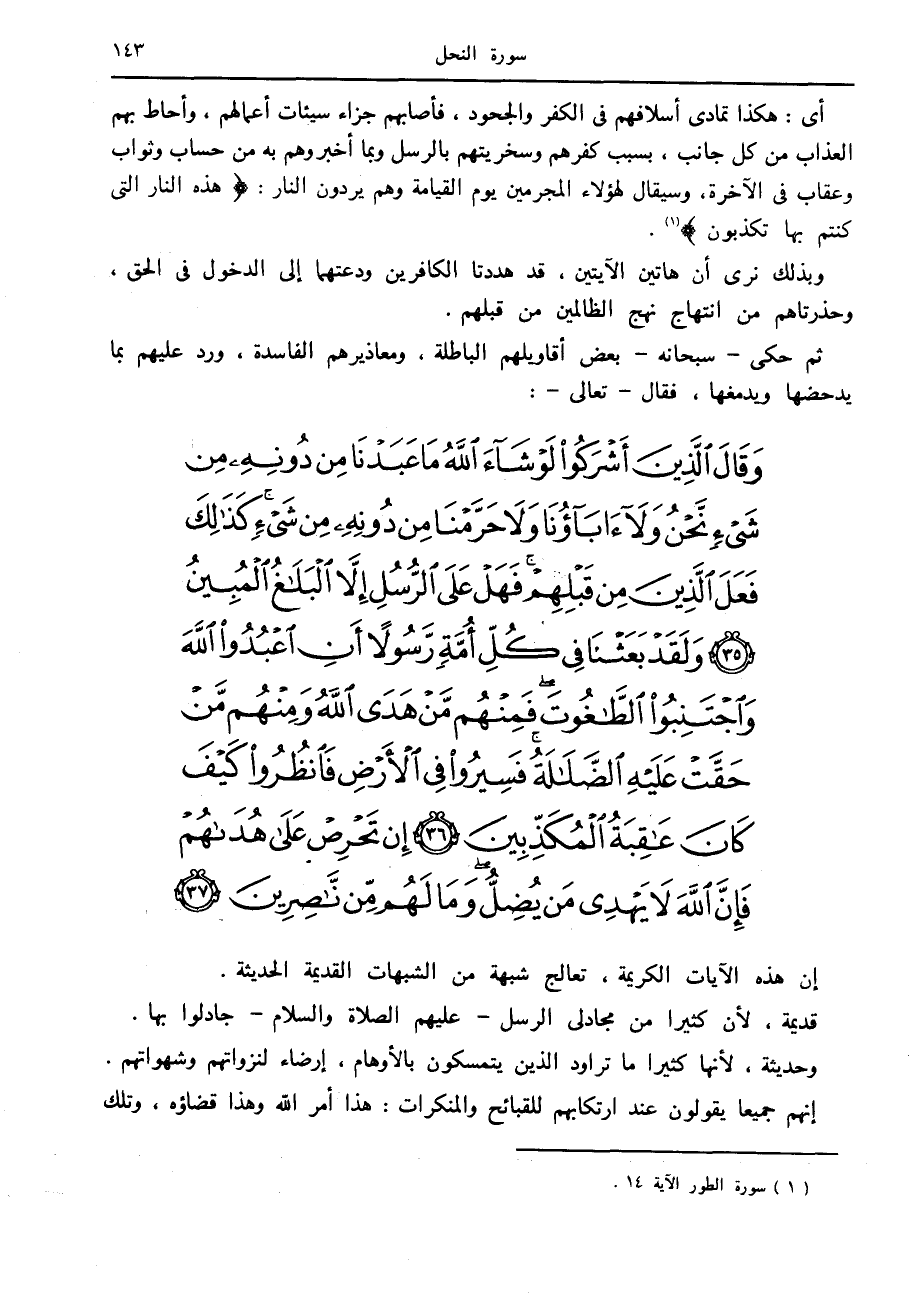 سورة النحل ١٤٣
أى : هكذا تمادى أسلافهم فى الكفر والجحود ، فأصابهم جزاء سيئات أعمالهم ، وأحاط بهم
العذاب من كل جانب ، بسبب كفرهم وسخريتهم بالرسل وبما أخبروهم به من حساب وثواب
وعقاب فى الآخرة، وسيقال لهؤلاء المجرمين يوم القيامة وهم يردون النار : ﴿ هذه النار التى
كنتم بها تكذبون ﴾(١) .
وبذلك نرى أن هاتين الآيتين ، قد هددتا الكافرين ودعتهما إلى الدخول فى الحق ،
وحذرتاهم من انتهاج نهج الظالمين من قبلهم .
ثم حكى – سبحانه – بعض أقاويلهم الباطلة ، ومعاذيرهم الفاسدة ، ورد عليهم بما
يدحضها ويدمغها ، فقال – تعالى – :
وَقَالَ ٱلَّذِينَ أَشْرَكُوا۟ لَوْ شَآءَ ٱللَّهُ مَا عَبَدْنَا مِن دُونِهِۦ مِن
شَىْءٍ نَّحْنُ وَلَآ ءَابَآؤُنَا وَلَا حَرَّمْنَا مِن دُونِهِۦ مِن شَىْءٍ ۚ كَذَٰلِكَ
فَعَلَ ٱلَّذِينَ مِن قَبْلِهِمْ ۚ فَهَلْ عَلَى ٱلرُّسُلِ إِلَّا ٱلْبَلَٰغُ ٱلْمُبِينُ
﴿٣٥﴾ وَلَقَدْ بَعَثْنَا فِى كُلِّ أُمَّةٍ رَّسُولًا أَنِ ٱعْبُدُوا۟ ٱللَّهَ
وَٱجْتَنِبُوا۟ ٱلطَّٰغُوتَ ۖ فَمِنْهُم مَّنْ هَدَى ٱللَّهُ وَمِنْهُم مَّنْ
حَقَّتْ عَلَيْهِ ٱلضَّلَٰلَةُ ۚ فَسِيرُوا۟ فِى ٱلْأَرْضِ فَٱنظُرُوا۟ كَيْفَ
كَانَ عَٰقِبَةُ ٱلْمُكَذِّبِينَ ﴿٣٦﴾ إِن تَحْرِصْ عَلَىٰ هُدَىٰهُمْ
فَإِنَّ ٱللَّهَ لَا يَهْدِى مَن يُضِلُّ ۖ وَمَا لَهُم مِّن نَّٰصِرِينَ ﴿٣٧﴾
إن هذه الآيات الكريمة ، تعالج شبهة من الشبهات القديمة الحديثة .
قديمة ، لأن كثيرا من مجادلى الرسل – عليهم الصلاة والسلام – جادلوا بها .
وحديثة ، لأنها كثيرا ما تراود الذين يتمسكون بالأوهام ، إرضاء لنزواتهم وشهواتهم .
إنهم جميعا يقولون عند ارتكابهم للقبائح والمنكرات : هذا أمر الله وهذا قضاؤه ، وتلك
( ١ ) سورة الطور الآية ١٤ .